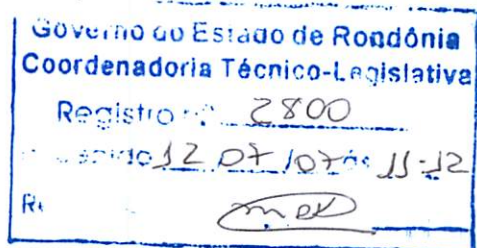 Governo do Estado de Rondônia
Coordenadoria Técnico-Legislativa
Registro nº 2800
12 07 107 às 11:12